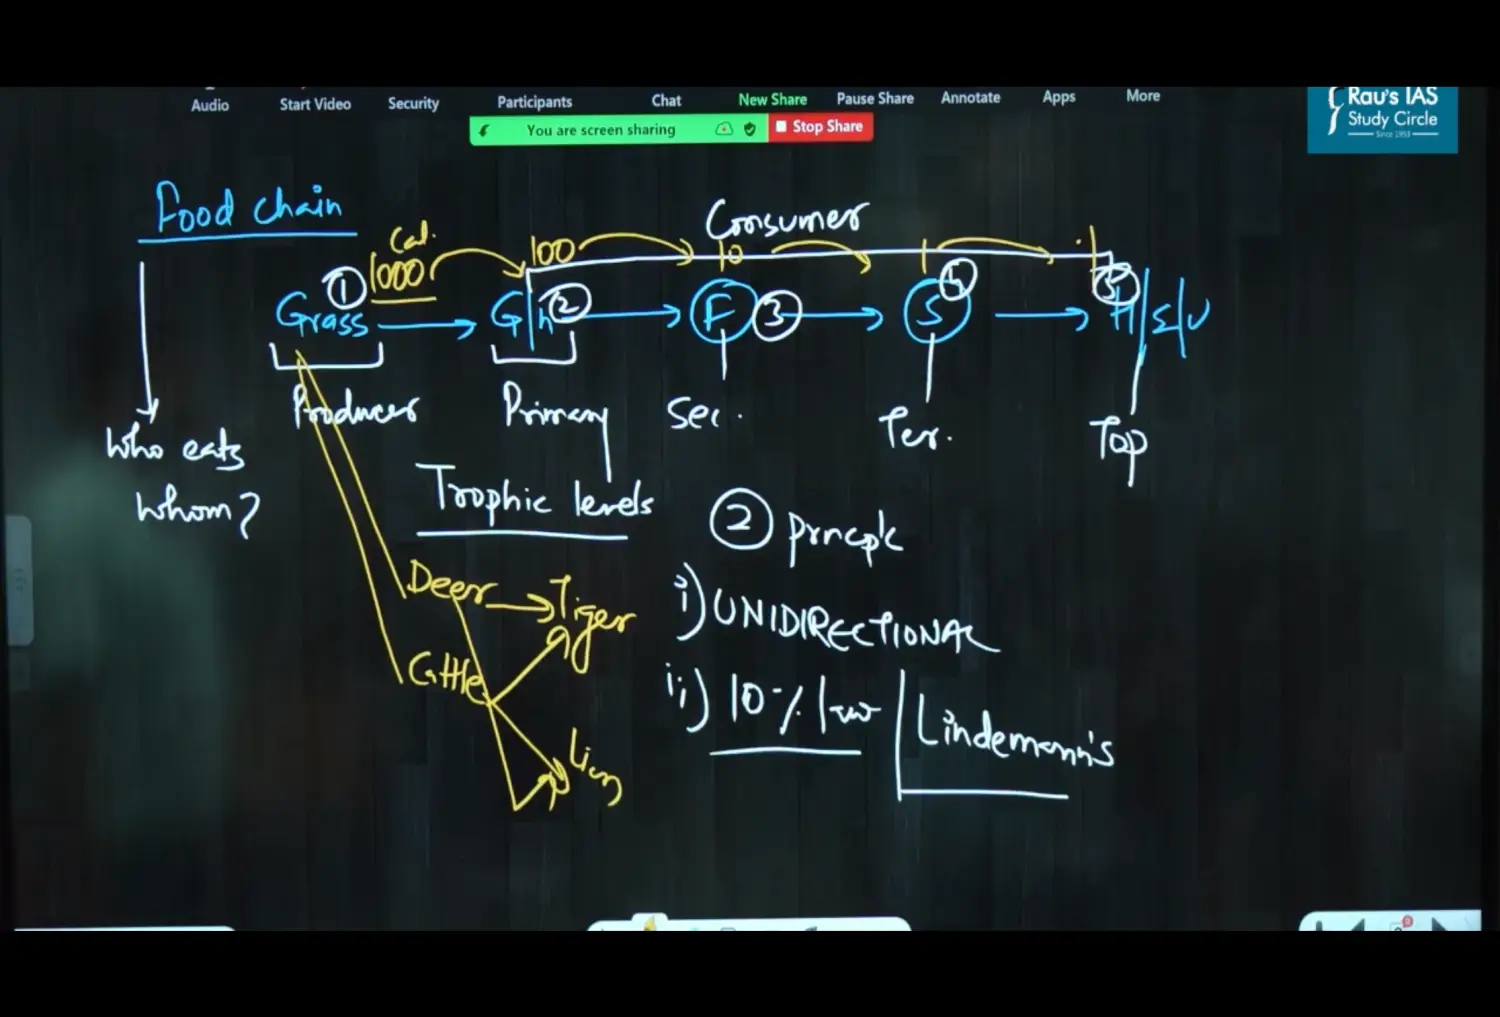 Audio Start Video Security Participants Chat New Share Pause Share Annotate Apps More
You are screen sharing Stop Share
Rau's IAS
Study Circle
Since 1953
Food chain
Consumer
Cal.
1000 100 10 1 .1
1 2 3 4 5
Grass → G/h → F → S → H/E/V
Producer Primary Sec. Ter. Top
Who eats
whom?
Trophic levels
2 prncple
Deer → Tiger
i) UNIDIRECTIONAL
Cattle
ii) 10% law Lindemann's
Lion